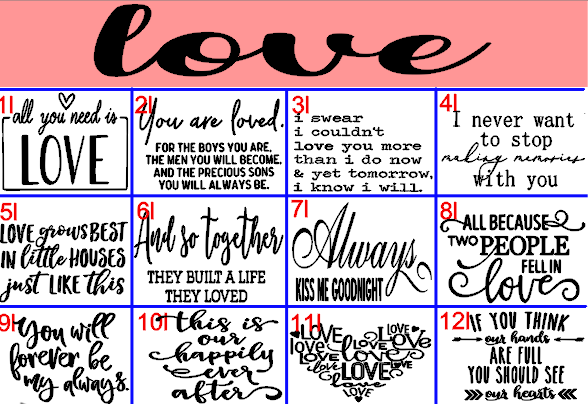 love
1l
all you need is
LOVE
2l
You are loved.
FOR THE BOYS YOU ARE,
THE MEN YOU WILL BECOME,
AND THE PRECIOUS SONS
YOU WILL ALWAYS BE.
3l
i swear
i couldn't
love you more
than i do now
& yet tomorrow,
i know i will.
4l
I never want
to stop
making memories
with you
5l
LOVE grows BEST
IN little HOUSES
just LIKE this
6l
And so together
THEY BUILT A LIFE
THEY LOVED
7l
Always
KISS ME GOODNIGHT
8l
ALL BECAUSE
TWO PEOPLE
FELL IN
love
9l
You will
forever be
my always.
10l
this is
our
happily
ever
after
11l
LOVE I LOVE
love love LOVE
LOVE love love
love LOVE LOVE
love
LOVE
12l
IF YOU THINK
our hands
ARE FULL
YOU SHOULD SEE
our hearts